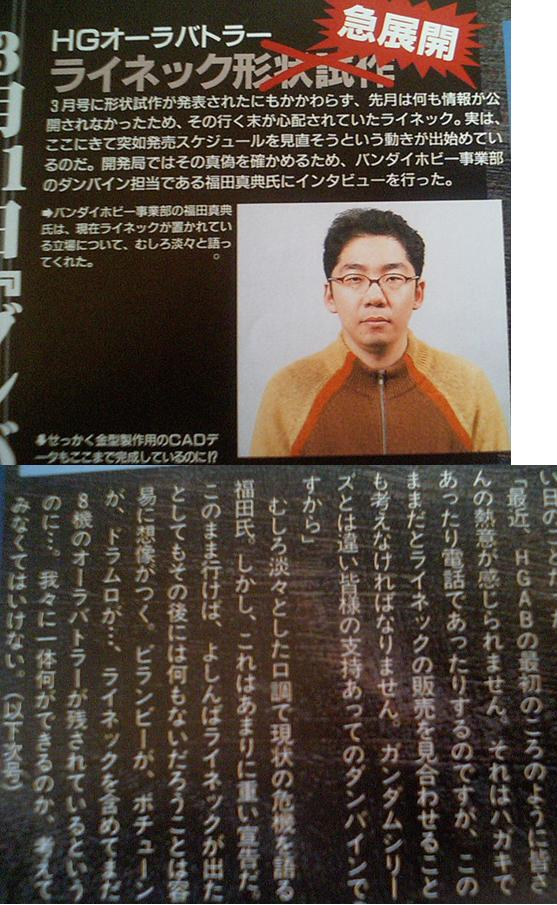 急展開
HGオーラバトラー
ライネック形状試作
3月号に形状試作が発表されたにもかかわらず、先月は何も情報が公
開されなかったため、その行く末が心配されていたライネック。実は、
ここにきて突如発売スケジュールを見直そうという動きが出始めてい
るのだ。開発局ではその真偽を確かめるため、バンダイホビー事業部
のダンバイン担当である福田真典氏にインタビューを行った。
➡バンダイホビー事業部の福田真典
氏は、現在ライネックが置かれてい
る立場について、むしろ淡々と語っ
てくれた。
せっかく金型製作用のCADデ
ータもここまで完成しているのに!?
3月1日『ダンバ
「最近、HGABの最初のころのように皆さ
んの熱意が感じられません。それはハガキで
あったり電話であったりするのですが、この
ままだとライネックの販売を見合わせること
も考えなければなりません。ガンダムシリー
ズとは違い皆様の支持あってのダンバインで
すから」
むしろ淡々とした口調で現状の危機を語る
福田氏。しかし、これはあまりに重い宣告だ。
このまま行けば、よしんばライネックが出た
としてもその後には何もないだろうことは容
易に想像がつく。ビランビーが、ボチューン
が、ドラムロが…、ライネックを含めてまだ
8機のオーラバトラーが残されているという
のに…。我々に一体何ができるのか、考えて
みなくてはいけない。（以下次号）